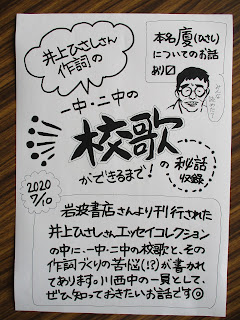 井上ひさしさん
作詞の
本名廈(ひさし)
についてのお話
あり☑
みんな読めた?
一中・二中の
校歌
ができるまで!
の秘話
収録
2020
7/10
岩波書店さんより刊行された
井上ひさしさんエッセイコレクション
の中に、一中・二中の校歌と、その
作詞づくりの苦悩(!?)が書かれ
てあります。川西中の一員として、
ぜひ知っておきたいお話です◎